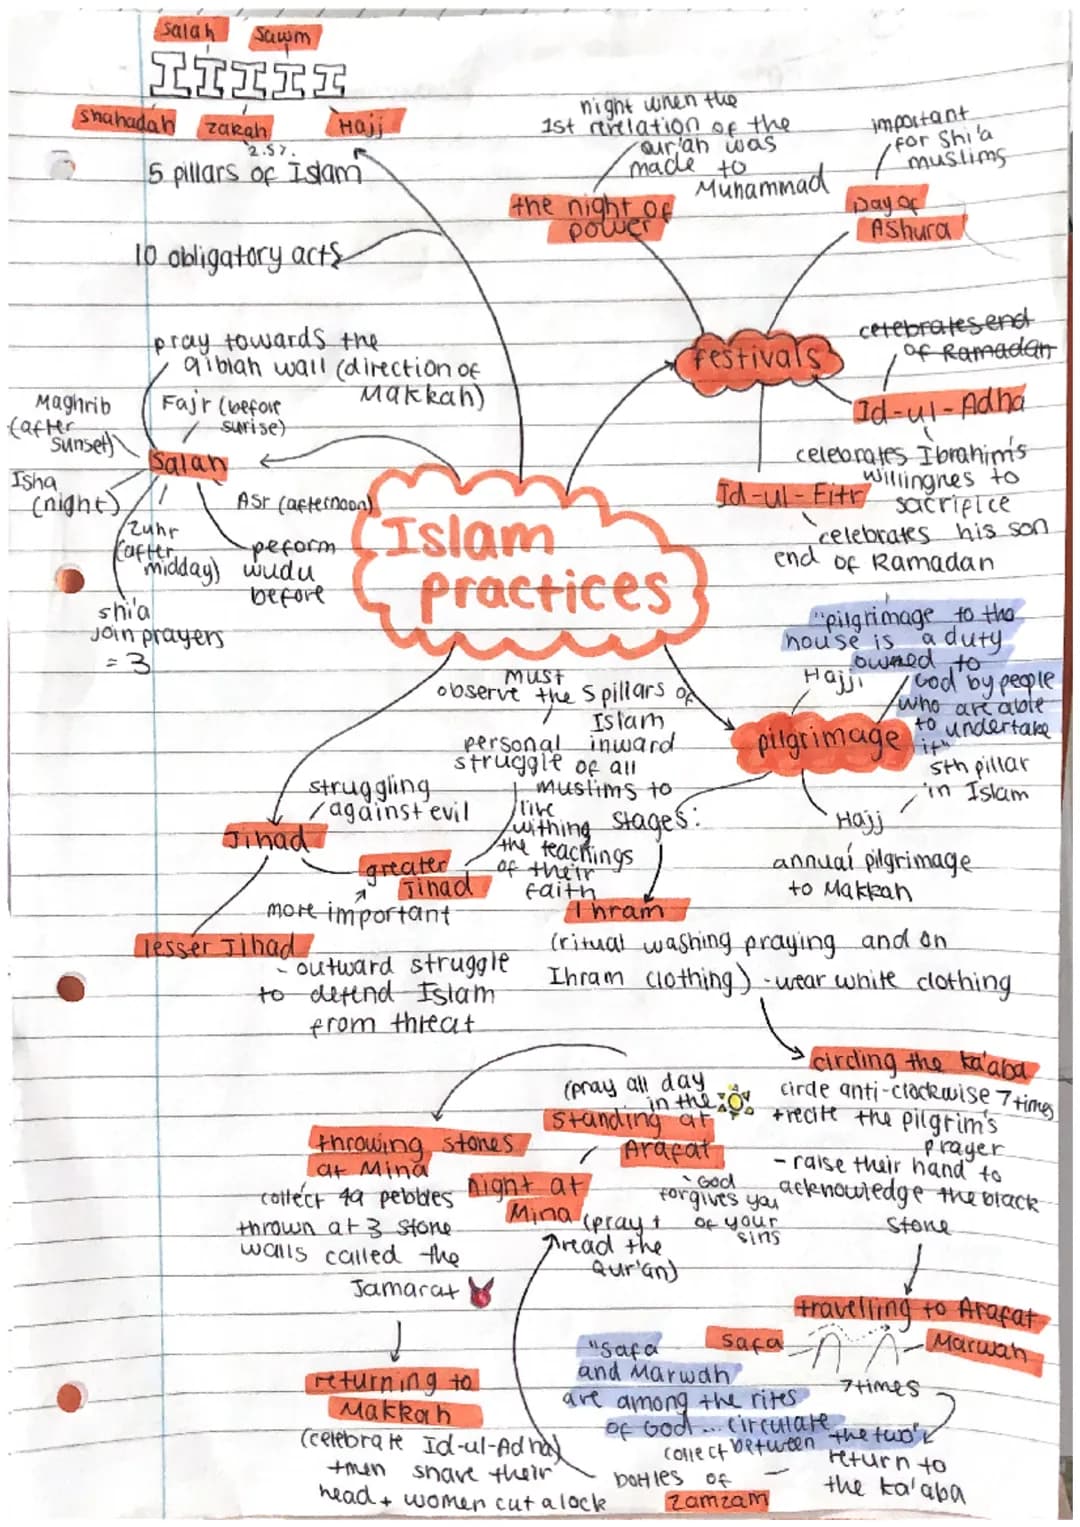 salah
sawm
shahadah
zakah
Hajj
2.5%
5 pillars of Islam
10 obligatory acts
night when the
1st revelation of the
Qur'an was
made to
Muhammad
the night of
power
important
for Shi'a
muslims
Day of
Ashura
festivals
celebrates end
of Ramadan
Id-ul-Adha
celebrates Ibrahim's
willingnes to
sacrifice
his son
Id-ul-Fitr
celebrates
end of Ramadan
pray towards the
qiblah wall (direction of
Makkah)
Maghrib
(after
sunset)
Fajr (before
surise)
Salah
Isha
(night)
Asr (afternoon)
Zuhr
(after
midday)
peform
wudu
before
shi'a
join prayers
= 3
Islam
practices
"pilgrimage to the
house is a duty
owned to
God by people
who are able
to undertake
it"
Hajj
pilgrimage
5th pillar
in Islam
Hajj
annual pilgrimage
to Makkah
Must
observe the 5 pillars of
Islam
personal inward
struggle of all
muslims to
live
withing
the teachings
of their
faith
struggling
against evil
Jihad
greater
Jihad
more important
lesser Jihad
- outward struggle
to defend Islam
from threat
stages:
Ihram
(ritual washing praying and on
Ihram clothing) - wear white clothing
circling the ka'aba
circle anti-clockwise 7 times
+ recite the pilgrim's
prayer
- raise their hand to
acknowledge the black
stone
travelling to Arafat
safa
Marwah
7 times
"safa
and Marwah
are among the rites
of God... circulate
between the two"
return to
the ka'aba
collect
bottles of
zamzam
night at
Mina
(pray +
read the
Qur'an)
(pray all day
in the
standing at
Arafat
God
forgives you
of your
sins
throwing stones
at Mina
collect 49 pebbles
thrown at 3 stone
walls called the
Jamarat
returning to
Makkah
(celebrate Id-ul-Adha)
+ men shave their
head + women cut a lock